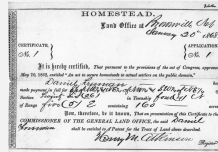 HOMESTEAD.
Land Office at Brownville Neb
January 20th 1868
CERTIFICATE, No. 1
APPLICATION, No. 1
It is hereby certified, That pursuant to the provisions of the act of Congress, approved
May 20, 1862, entitled "An act to secure homesteads to actual settlers on the public domain,"
Daniel Freeman has
made payment in full for
of Section
in Township four (4) N
of Range five (5) E containing 160 acres.
Now, therefore, be it known, That on presentation of this Certificate to the
COMMISSIONER OF THE GENERAL LAND OFFICE, the said Daniel
Freeman shall be entitled to a Patent for the Tract of Land above described.
Henry M. Atkinson
Register